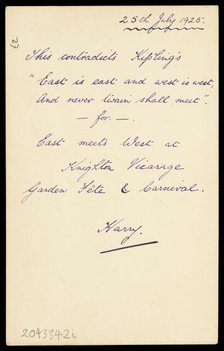 25th July 1925.
62
This contradicts Kipling's
"East is east and west is west,
And never twain shall meet".
— for —.
East meets West at
Knighton Vicarage
Garden Fête & Carnival.
Harry.
2043342i